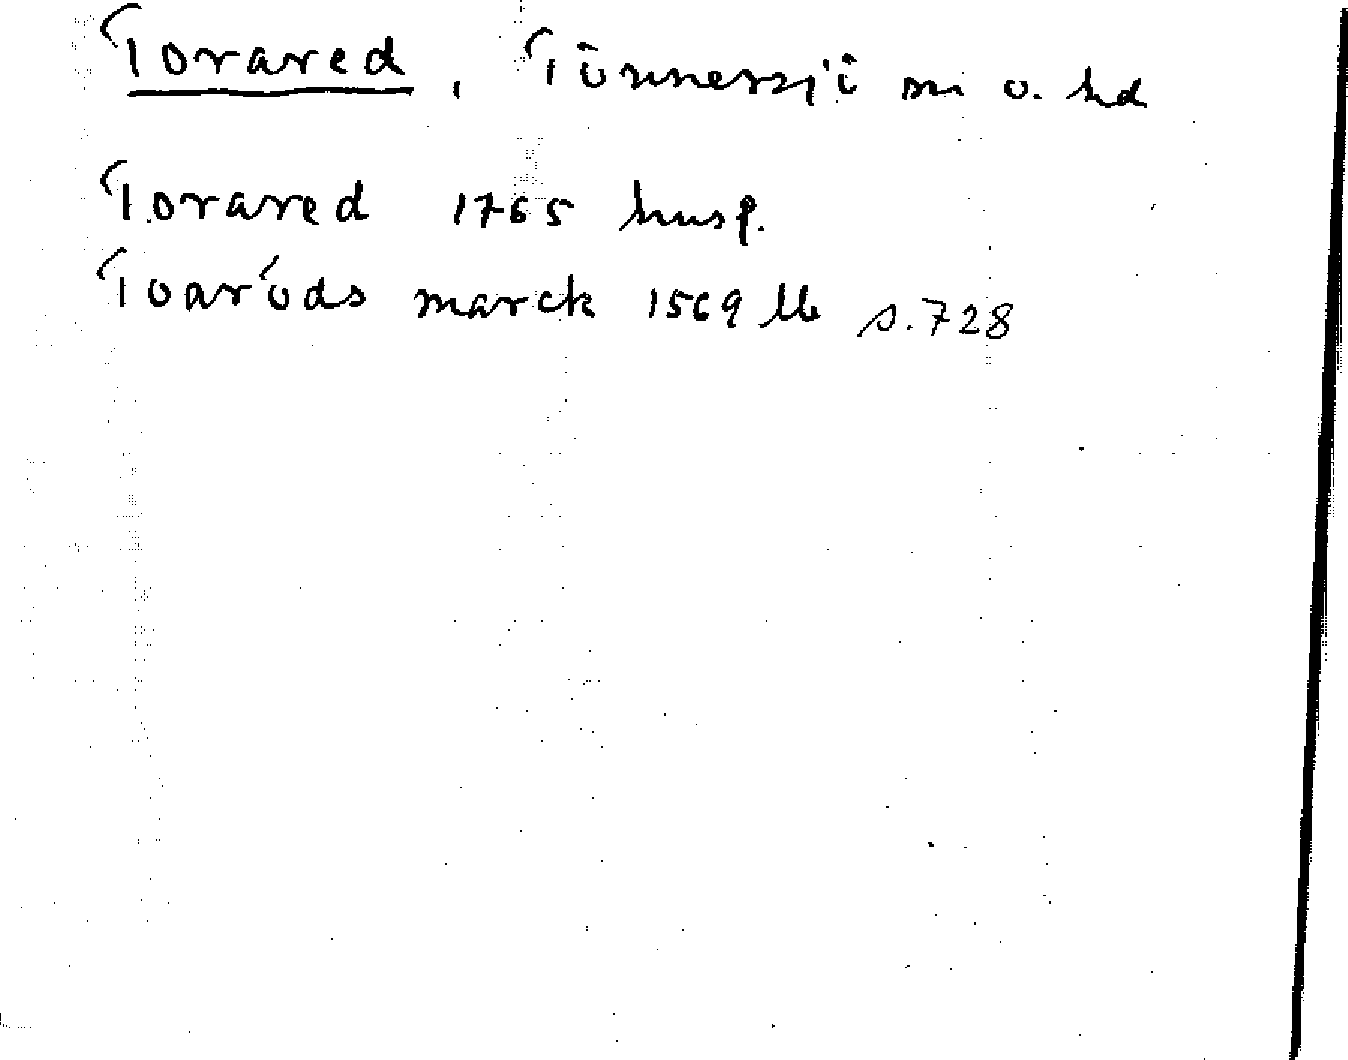 Torared, Tönnersjö sn o. hd
Torared 1765 husp.
Toaröds marck 1569 Ub s. 728